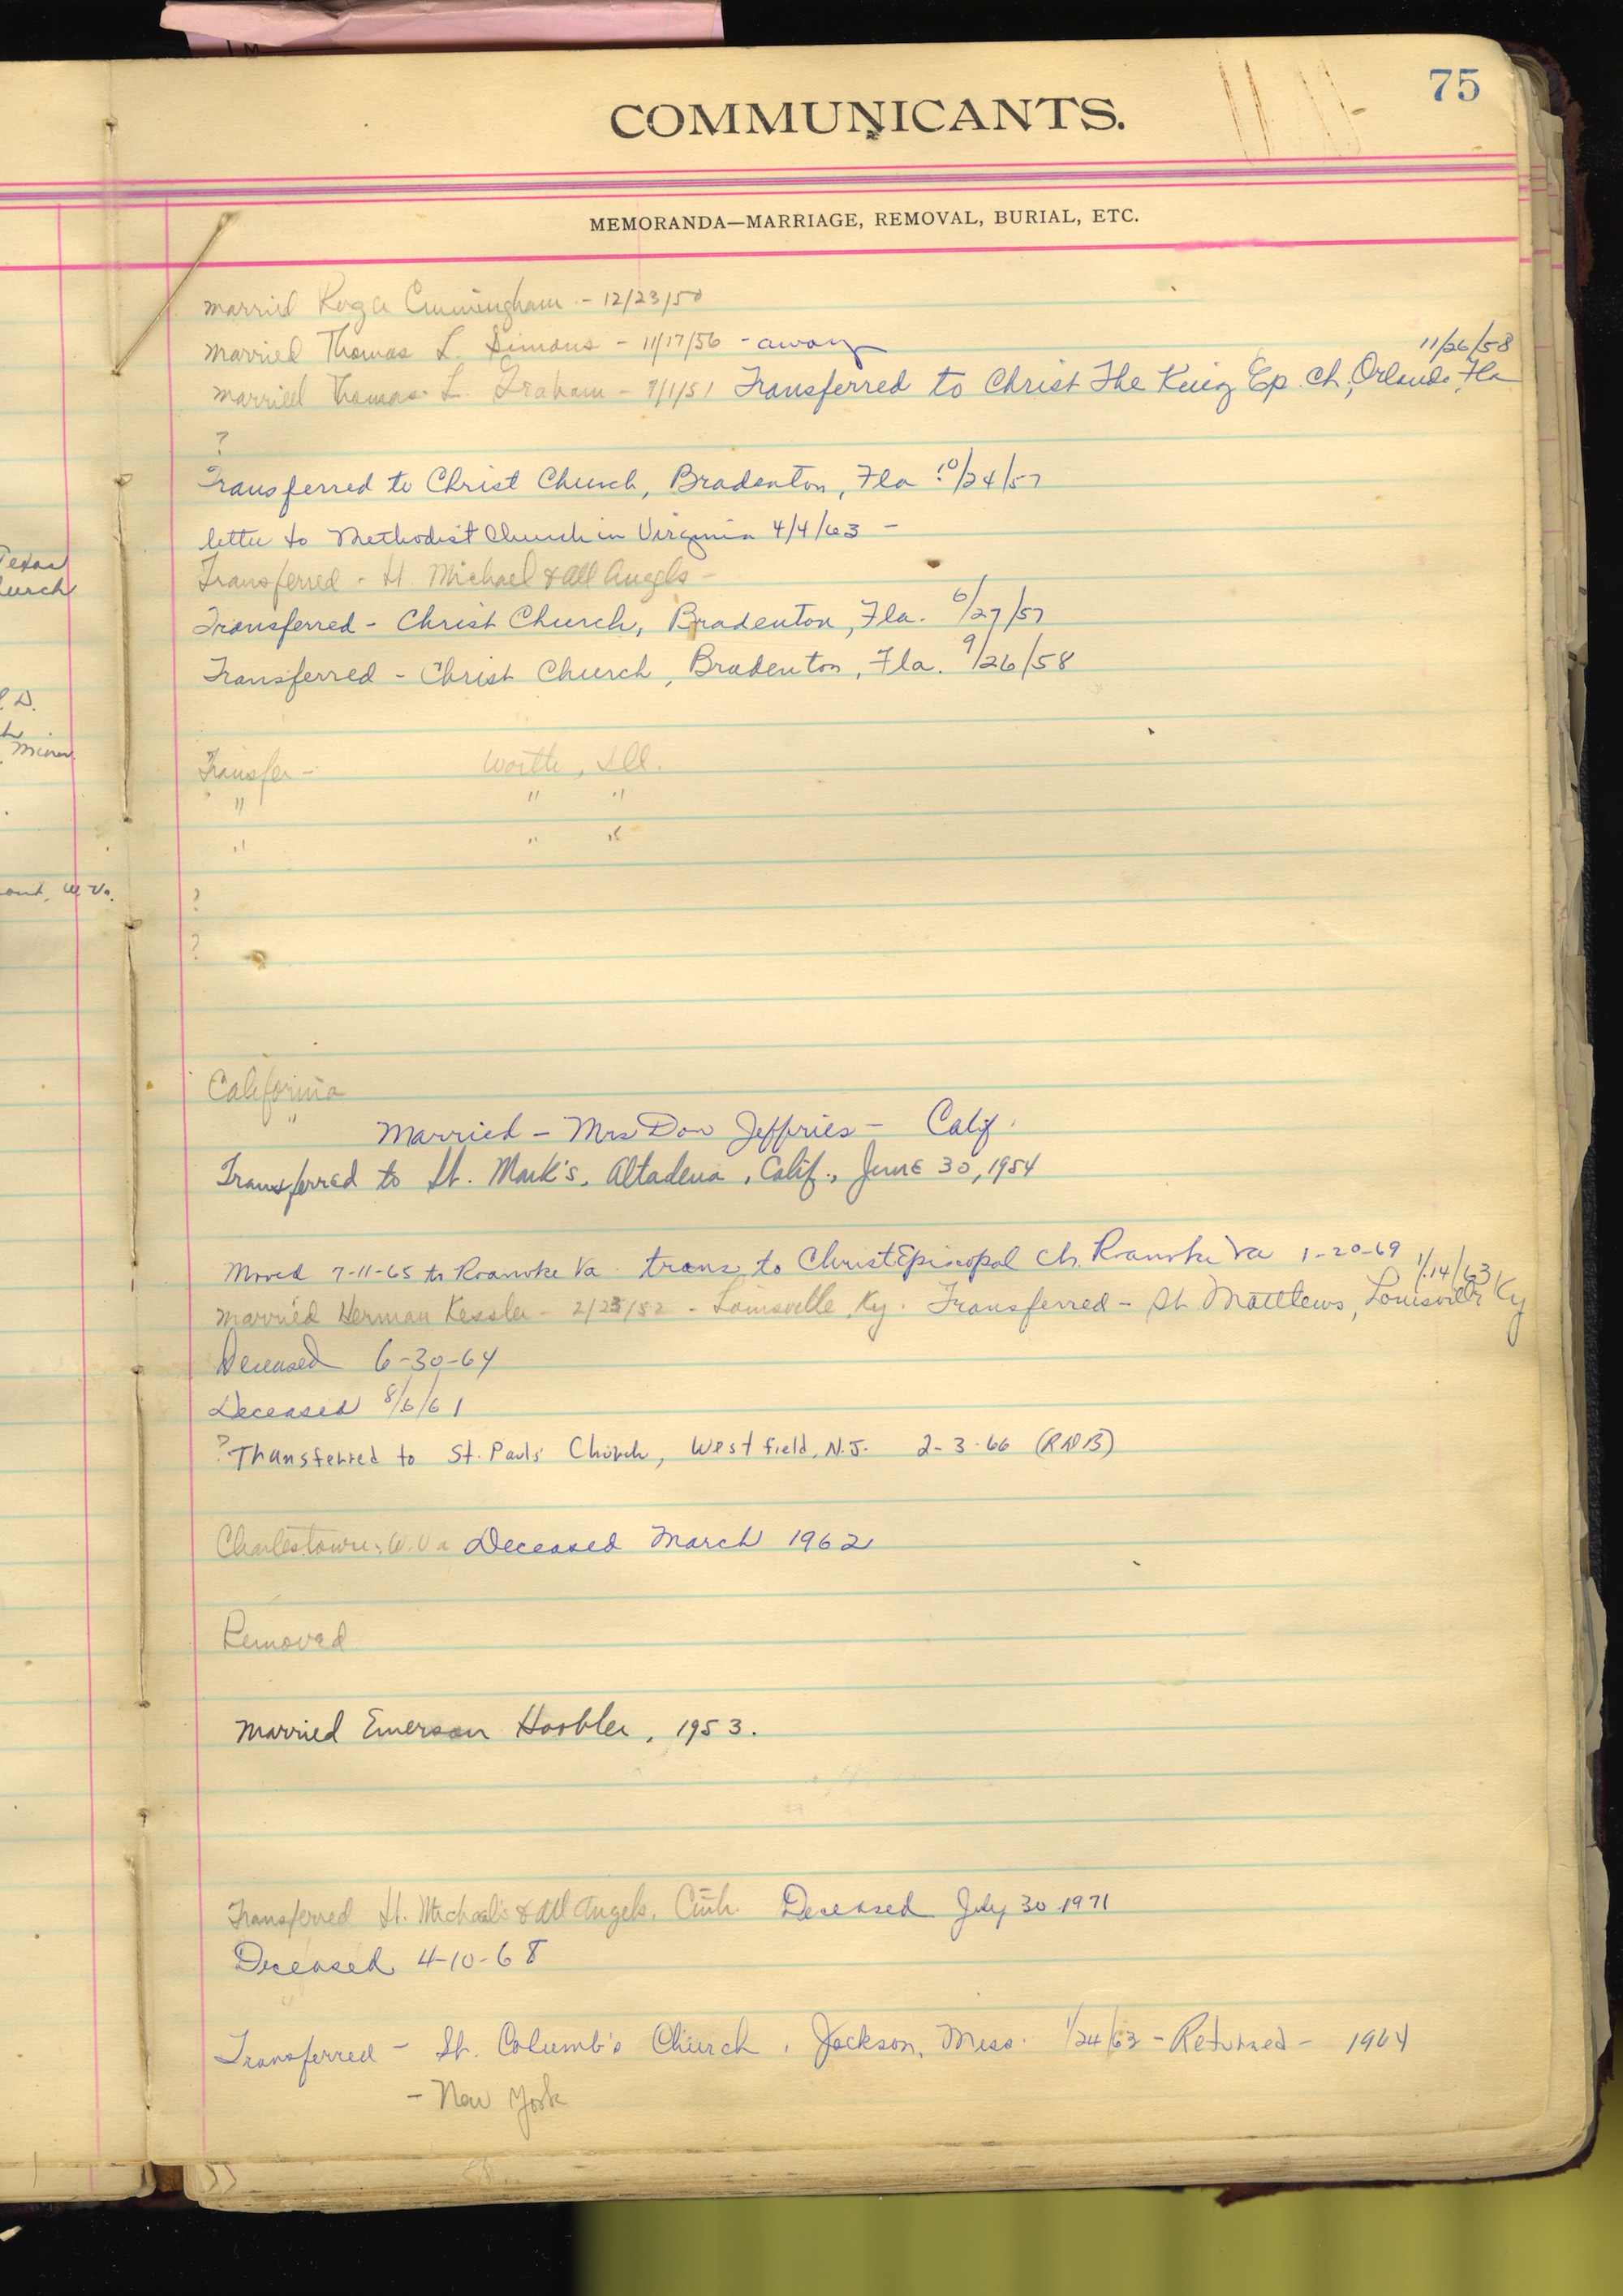 75
COMMUNICANTS.
MEMORANDA—MARRIAGE, REMOVAL, BURIAL, ETC.
married Roger Cunningham - 12/23/50
married Thomas L. Simons - 11/17/56 - away
11/26/58
married Thomas L. Graham - 7/1/51 Transferred to Christ The King Ep. Ch., Orlando, Fla
?
Transferred to Christ Church, Bradenton, Fla 10/24/57
letter to Methodist Church in Virginia 4/4/63 -
Texas
Transferred - St. Michael & All Angels -
Transferred - Christ Church, Bradenton, Fla. 6/27/57
Transferred - Christ Church, Bradenton, Fla. 9/26/58
Transfer - Worth, Ill.
" " "
" " "
W Va.
?
?
California
"
Married - Mrs Don Jeffries - Calif.
Transferred to St. Mark's, Altadena, Calif., June 30, 1954
Moved 7-11-65 to Roanoke Va trans to Christ Episcopal Ch. Roanoke Va 1-20-69
1/14/63
married Herman Kessler - 2/23/52 - Louisville, Ky. Transferred - St. Matthews, Louisville Ky
Deceased 6-30-64
Deceased 8/6/61
? Transferred to St. Pauls' Church, Westfield, N.J. 2-3-66 (RNB)
Charlestown, W. Va Deceased March 1962
Removed
Married Emerson Hoobler, 1953.
Transferred St. Michael's & All Angels, Cinti. Deceased July 30 1971
Deceased 4-10-68
Transferred - St. Columb's Church, Jackson, Miss. 1/24/63 - Returned - 1964
- New York